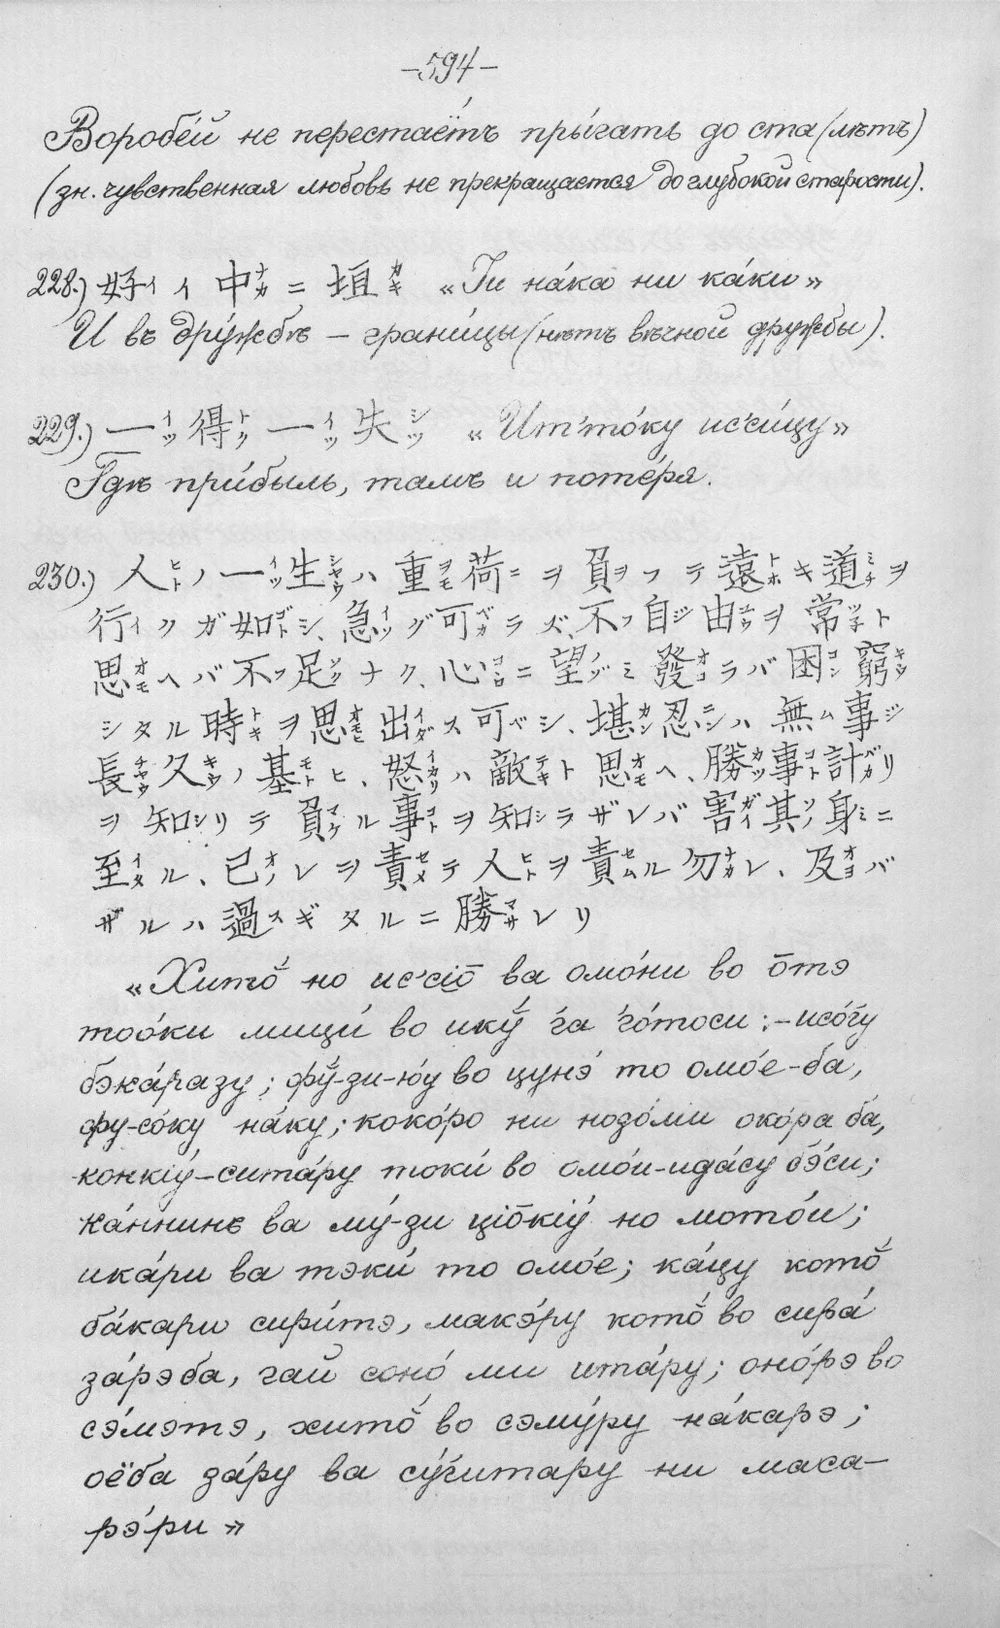 –594–
Воробе́й не перестаётъ пры́гать до ста (лѣтъ)
(зн. чувственная любовь не прекращается до глубокой старости).
228.) 好イイ中ナカニ垣カキ «Іи на́ка ни ка́ки»
И въ дру́жбѣ – грани́цы (нѣтъ вѣчной дружбы).
229.) 一イツ得トク一イツ失シツ «Ит'то́ку ис'си́цу»
Гдѣ при́быль, тамъ и поте́ря.
230.) 人ヒトノ一イツ生シヤウハ重ヲモ荷ニヲ負ヲフテ遠トホキ道ミチヲ
行イクガ如ゴトシ、急イソグ可ベカラズ、不フ自ジ由ユウヲ常ツネト
思オモヘバ不フ足ソクナク、心コロニ望ノゾミ發オコラバ困コン窮キウ
シタル時トキヲ思オモヒ出イダス可ベシ、堪カン忍ニンハ無ム事ジ
長チヤウ久キウノ基モトヒ、怒イカリハ敵テキト思オモヘ、勝カツ事コト計バカリ
ヲ知シリテ負マケル事コトヲ知シラザレバ害ガイ其ソノ身ミニ
至イタル、已オノレヲ責セメテ人ヒトヲ責セムル勿ナカレ、及オヨバ
ザルハ過スギタルニ勝マサレリ
«Хито̄́ но ис'сіо̄ ва омо́ни во о̄тэ
тоо́ки мици́ во икӯ́ га го́тоси :– исо́гу
бэка́разу ; фӯ́-зи-ю́у во цунэ́ то омо́е-ба,
фу-со́ку на́ку ; коко́ро ни нозо́ми око́ра ба,
конкіу́–сита́ру токи́ во омо́и-ида́су бэ́си ;
ка́ннинъ ва му́-зи ціо̄кіу́ но мото́и ;
ика́ри ва тэки́ то омо́е ; ка́цу кото̄́
ба́кари сири́тэ, макэ́ру кото̄́ во сира́
за́рэба, гай соно́ ми ита́ру ; оно́рэ во
сэ́мэтэ, хито̄́ во сэму́ру на́карэ ;
оёба за́ру ва су́гитару ни маса–
рэ́ри »